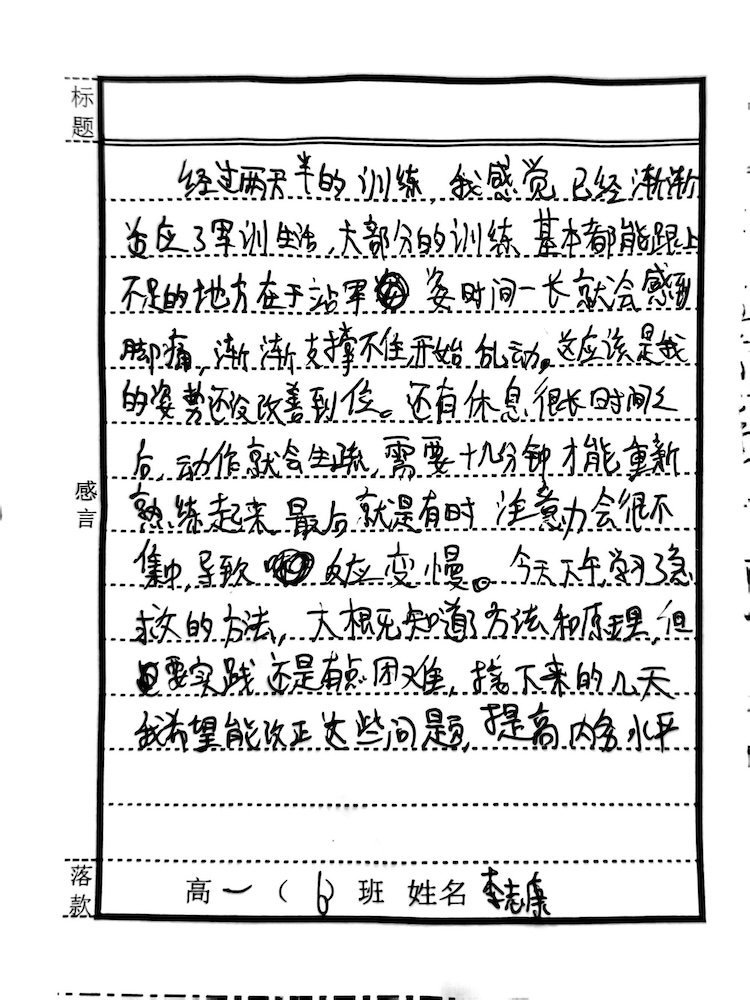 标题
经过两天半的训练,我感觉已经渐渐
适应了军训生活,大部分的训练基本都能跟上
不足的地方在于站军姿时间一长就会感到
脚痛,渐渐支撑不住开始乱动。这应该是我
的姿势还没改善到位。还有休息很长时间之
后,动作就会生疏,需要十几分钟才能重新
熟练起来。最后就是有时注意力会很不
集中,导致反应变慢。今天下午学习了急
救的方法,大概知道了方法和原理,但
要实践还是有点困难,接下来的几天
我希望能改正这些问题,提高内务水平
感言
落款
高一(6)班 姓名 李志康